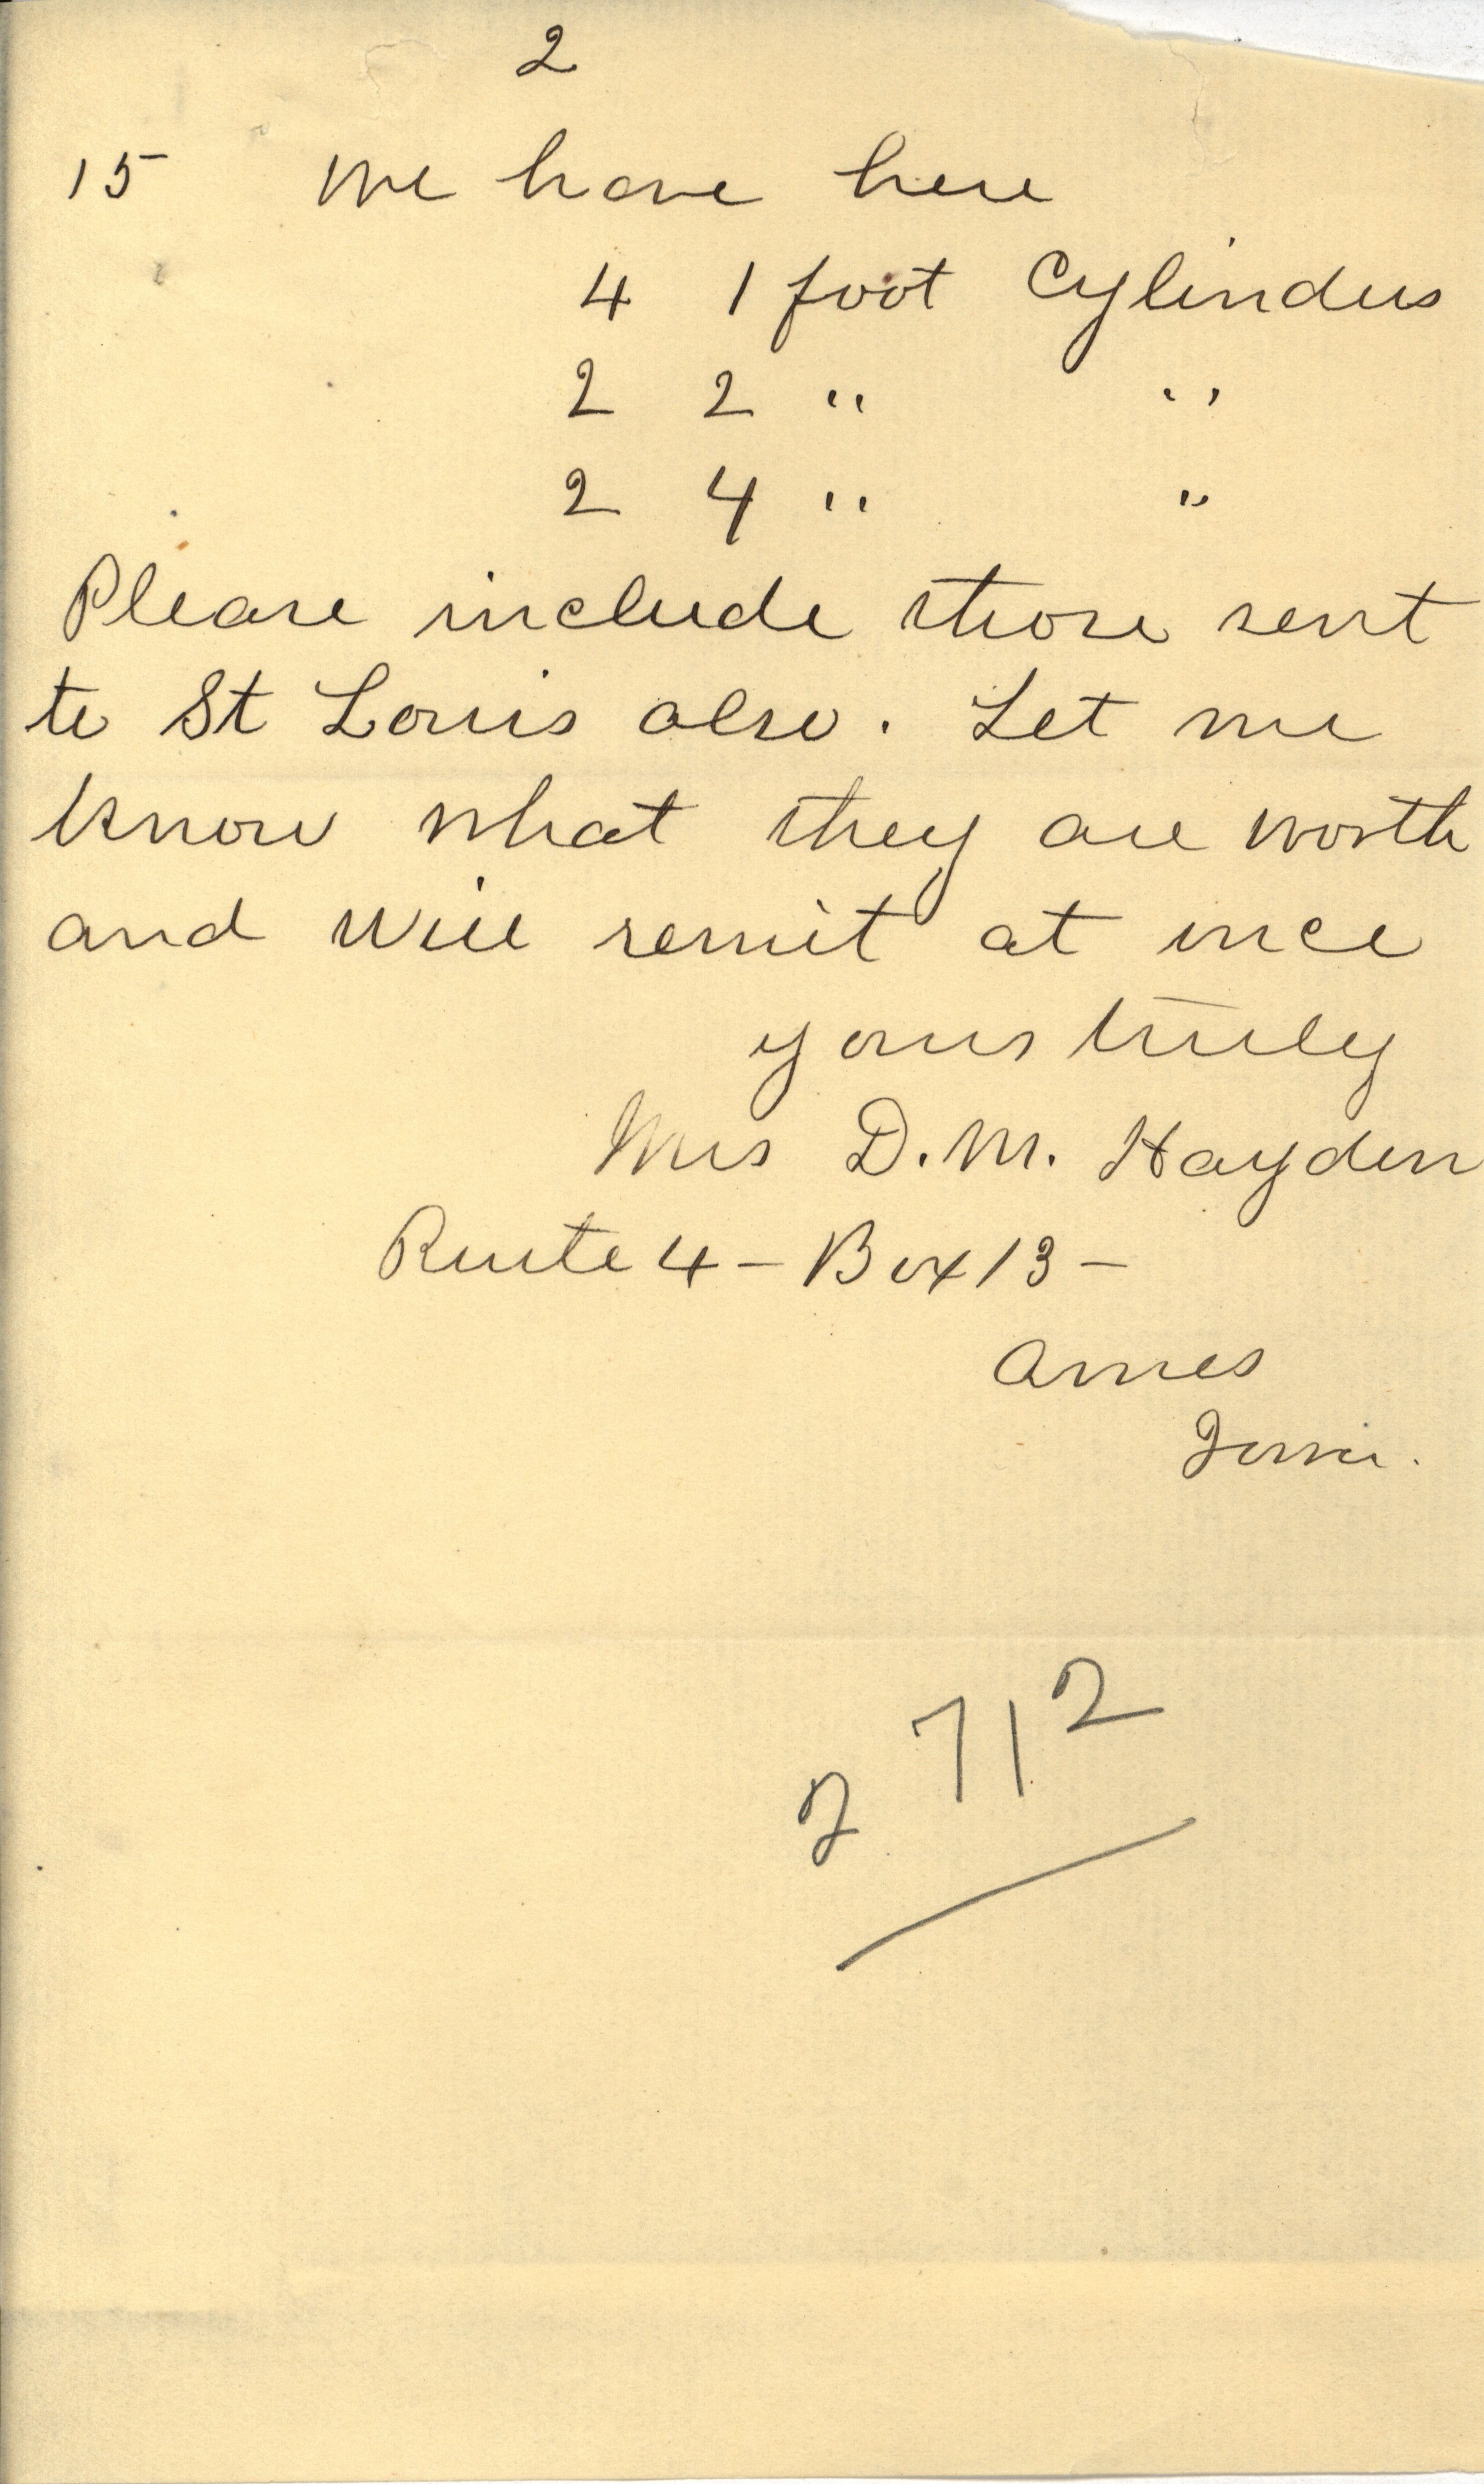 2
15 We have here
4 1 foot Cylinders
2 2 " "
2 4 " "
Please include those sent
to St Louis also. Let me
know what they are worth
and will remit at once
yours truly
Mrs D. M. Hayden
Route 4 - Box 13 -
Ames
Iowa.
2712